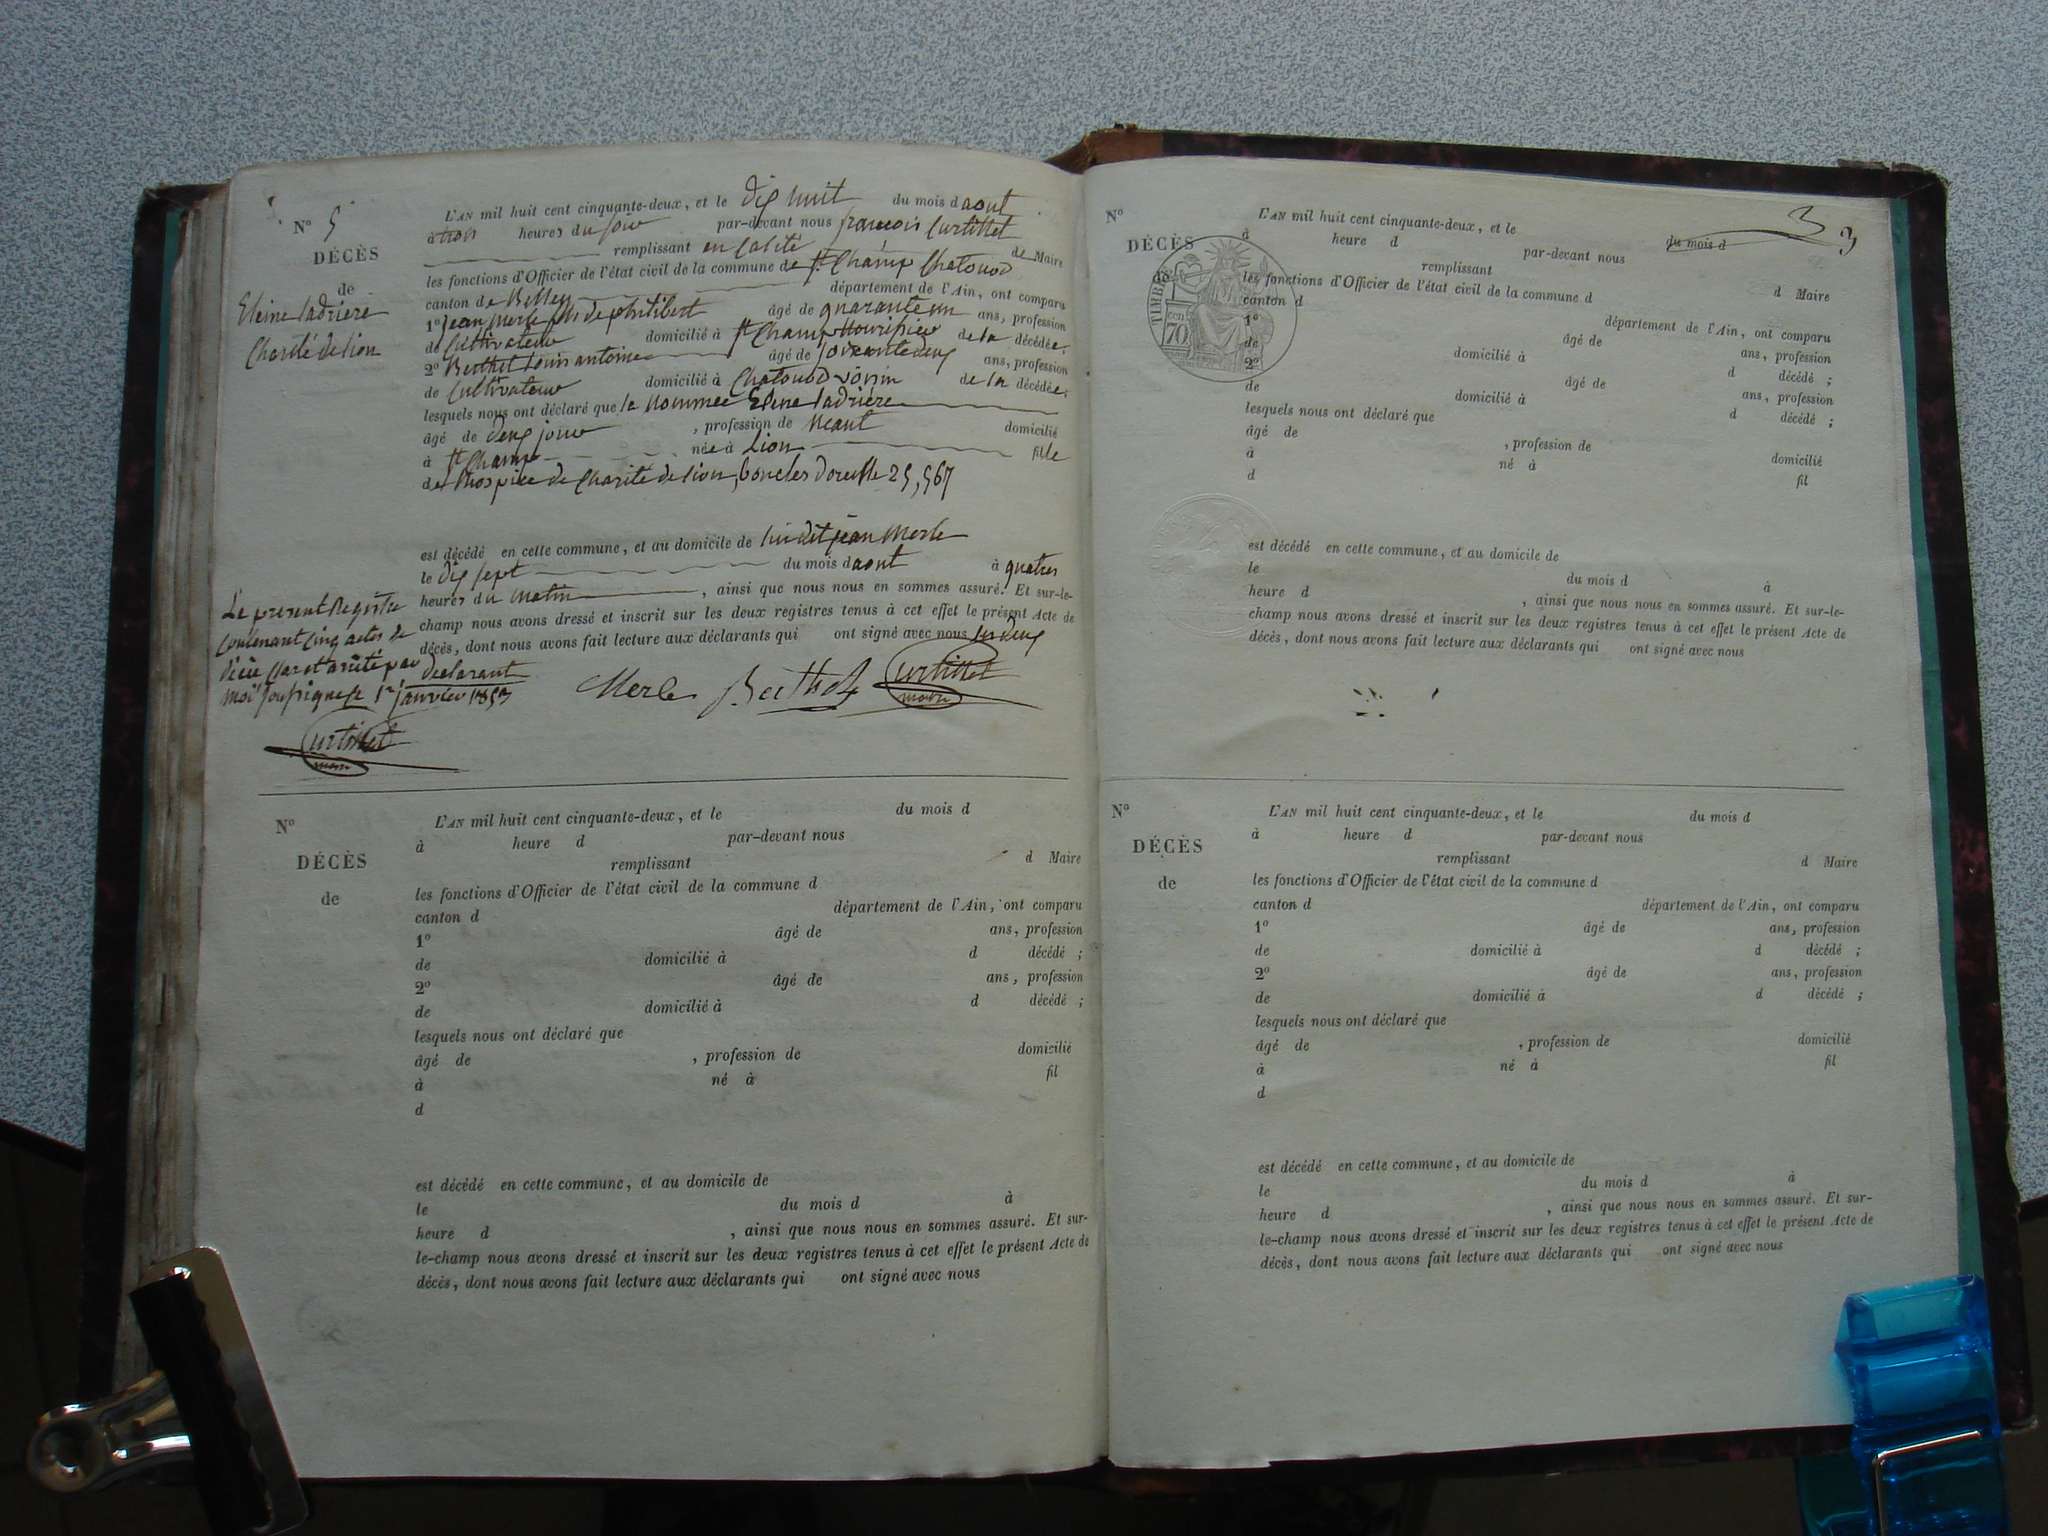 N° 5
DÉCÈS
de
Eleine ladriere
Charité de lion
L'AN mil huit cent cinquante-deux, et le dix huit du mois d aout
à trois heures du jour par-devant nous francois Curtillet
remplissant en calité de Maire
les fonctions d'Officier de l'état civil de la commune de St Champ Chatonod
canton de Belley département de l'Ain, ont comparu
1° Jean Merle fils de philibert âgé de quarante un ans, profession
de Cultivateur domicilié à St Champ Nouricier de la décédée;
2° Berthet louis antoine âgé de soixante deux ans, profession
de Cultivateur domicilié à Chatonod voisin de la décédée;
lesquels nous ont déclaré que la nommee Elene ladriere
âgé de deux jour, profession de Neant domicilié
à St Champ née à Lion fille
de l'hospice de Charité de lion, boucles doreille 25,567
est décédé en cette commune, et au domicile du dit jean Merle
le dix sept du mois d aout à quatres
heures du matin, ainsi que nous nous en sommes assuré. Et sur-le-
champ nous avons dressé et inscrit sur les deux registres tenus à cet effet le présent Acte de
décès, dont nous avons fait lecture aux déclarants qui ont signé avec nous les deux
declarant
Merle Berthet Curtillet
maire
Le present Registre
contenant cinq actes de
décè clos et arrêté par
moi soussigné le 1er janvier 1853
Curtillet
maire
N°
DÉCÈS
de
L'AN mil huit cent cinquante-deux, et le du mois d
à heure d par-devant nous
remplissant d Maire
les fonctions d'Officier de l'état civil de la commune d
canton d département de l'Ain, ont comparu
1° âgé de ans, profession
de domicilié à d décédé ;
2° âgé de ans, profession
de domicilié à d décédé ;
lesquels nous ont déclaré que
âgé de , profession de domicilié
à né à fil
d
est décédé en cette commune, et au domicile de
le du mois d à
heure d , ainsi que nous nous en sommes assuré. Et sur-
le-champ nous avons dressé et inscrit sur les deux registres tenus à cet effet le présent Acte de
décès, dont nous avons fait lecture aux déclarants qui ont signé avec nous
3
3
N°
DÉCÈS
de
TIMBRE
70 cen
L'AN mil huit cent cinquante-deux, et le du mois d
à heure d par-devant nous
remplissant d Maire
les fonctions d'Officier de l'état civil de la commune d
canton d département de l'Ain, ont comparu
1° âgé de ans, profession
de domicilié à d décédé ;
2° âgé de ans, profession
de domicilié à d décédé ;
lesquels nous ont déclaré que
âgé de , profession de domicilié
à né à fil
d
est décédé en cette commune, et au domicile de
le du mois d à
heure d , ainsi que nous nous en sommes assuré. Et sur-le-
champ nous avons dressé et inscrit sur les deux registres tenus à cet effet le présent Acte de
décès, dont nous avons fait lecture aux déclarants qui ont signé avec nous
N°
DÉCÈS
de
L'AN mil huit cent cinquante-deux, et le du mois d
à heure d par-devant nous
remplissant d Maire
les fonctions d'Officier de l'état civil de la commune d
canton d département de l'Ain, ont comparu
1° âgé de ans, profession
de domicilié à d décédé ;
2° âgé de ans, profession
de domicilié à d décédé ;
lesquels nous ont déclaré que
âgé de , profession de domicilié
à né à fil
d
est décédé en cette commune, et au domicile de
le du mois d à
heure d , ainsi que nous nous en sommes assuré. Et sur-
le-champ nous avons dressé et inscrit sur les deux registres tenus à cet effet le présent Acte de
décès, dont nous avons fait lecture aux déclarants qui ont signé avec nous